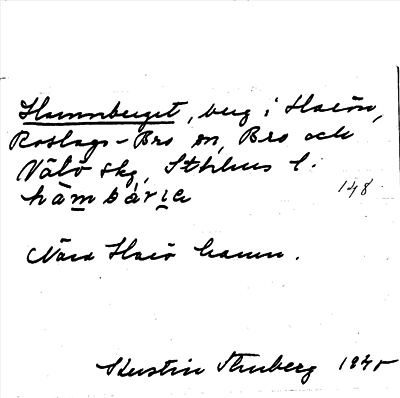 Hamnberget, berg i Harön,
Roslags-Bro sn, Bro och
Väto skg, Sthlms l.
hàm bár̲i̲e 148
Nära Harö hamn.
Kerstin Thuberg 1940